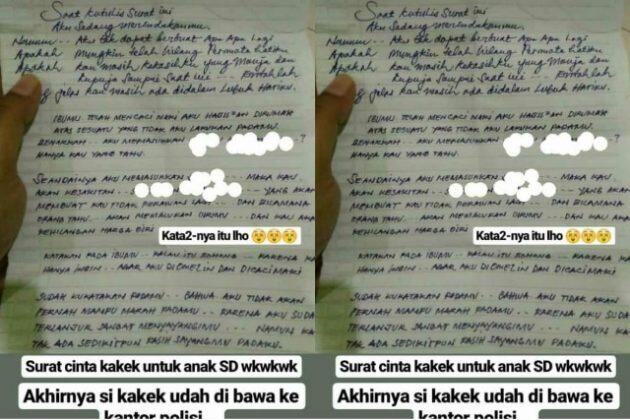 Saat kutulis surat ini
Aku sedang merindukanmu
Namun.. Aku tak dapat berbuat apa apa lagi
Apakah mungkin telah hilang permata hatiku
Apakah kau masih kekasihku yang manja dan
kupuja sampai saat ini .. Entahlah
jelas kau masih ada didalam lubuk hatiku.
IBUMU TELAH MENCACI MAKI AKU
ATAS SESUATU YANG TIDAK AKU LAKUKAN PADAMU.
BENARKAH .. AKU MEMASUKKAN ?
HANYA KAU YANG TAHU.
SEANDAINYA AKU MEMASUKKAN MAKA KAU
AKAN KESAKITAN.. YANG AKAN
MEMBUAT KAU TIDAK PERAWAN LAGI .. DAN BILAMANA
ORANG TAHU. AKAN MEMALUKAN DAN KAU AKAN
KEHILANGAN HARGA DIRI
Kata2-nya itu lho 😲😲😲
KATAKAN PADA IBUMU .. KALAU ITU BOHONG .. KARENA
HANYA .. AGAR AKU DIOMELIN DAN DICACIMAKI
SUDAH KUKATAKAN PADAMU .. BAHWA AKU TIDAK AKAN
PERNAH MAMPU MARAH PADAMU .. KARENA AKU SUDA
TERLANJUR SANGAT MENYAYANGIMU .. NAMUN
TAK ADA SEDIKITPUN SAYANGMU PADAKU.
Surat cinta kakek untuk anak SD wkwkwk
Akhirnya si kakek udah di bawa ke
kantor polisi
Saat kutulis surat ini
Aku sedang merindukanmu
Namun.. Aku tak dapat berbuat apa apa lagi
Apakah mungkin telah hilang permata hatiku
Apakah kau masih kekasihku yang manja dan
kupuja sampai saat ini .. Entahlah
jelas kau masih ada didalam lubuk hatiku.
IBUMU TELAH MENCACI MAKI AKU
ATAS SESUATU YANG TIDAK AKU LAKUKAN PADAMU.
BENARKAH .. AKU MEMASUKKAN ?
HANYA KAU YANG TAHU.
SEANDAINYA AKU MEMASUKKAN MAKA KAU
AKAN KESAKITAN.. YANG AKAN
MEMBUAT KAU TIDAK PERAWAN LAGI .. DAN BILAMANA
ORANG TAHU. AKAN MEMALUKAN DAN KAU AKAN
KEHILANGAN HARGA DIRI
Kata2-nya itu lho 😲😲😲
KATAKAN PADA IBUMU .. KALAU ITU BOHONG .. KARENA
HANYA .. AGAR AKU DIOMELIN DAN DICACIMAKI
SUDAH KUKATAKAN PADAMU .. BAHWA AKU TIDAK AKAN
PERNAH MAMPU MARAH PADAMU .. KARENA AKU SUDA
TERLANJUR SANGAT MENYAYANGIMU .. NAMUN
TAK ADA SEDIKITPUN SAYANGMU PADAKU.
Surat cinta kakek untuk anak SD wkwkwk
Akhirnya si kakek udah di bawa ke
kantor polisi